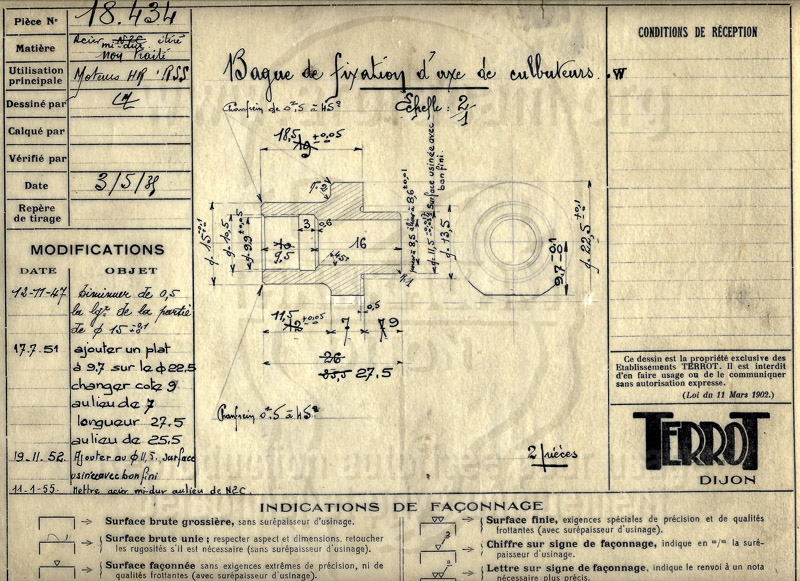 Pièce N° 18.434
Matière Acier mi-dur étiré
non traité
Utilisation principale Moteurs HR. RSS
Dessiné par
Calqué par
Vérifié par
Date 3/5/39
Repère de tirage
MODIFICATIONS
DATE OBJET
12-11-47 Diminuer de 0,5
la lgr de la partie
de φ 15
17.7.51 ajouter un plat
à 9.7 sur le φ 22.5
changer cote 9
au lieu de 7
longueur 27.5
au lieu de 25.5
19.11.52. Ajouter au φ 11,5. surface
usinée avec bon fini
11.1.55. Mettre acier mi-dur au lieu de N2C.
Bague de fixation d'axe de culbuteurs.
W
Echelle: 2/1
Chanfrein de 0.5 à 45°
18,5 +0,05
19
φ 15
φ 10,5
φ 9,9
3
0,6
10
9,5
16
φ 11,5
surface usinée avec
bon fini
φ 13,5
9.7
φ 22,5 ±0,1
11,5 +0,05
12
7
7 9
0,5
26
25,5 27.5
Chanfrein 0.5 à 45°
2 pièces
CONDITIONS DE RÉCEPTION
Ce dessin est la propriété exclusive des
Etablissements TERROT. Il est interdit
d'en faire usage ou de le communiquer
sans autorisation expresse.
(Loi du 11 Mars 1902.)
TERROT
DIJON
INDICATIONS DE FAÇONNAGE
Surface brute grossière, sans surépaisseur d'usinage.
Surface brute unie; respecter aspect et dimensions, retoucher
les rugosités s'il est nécessaire (sans surépaisseur d'usinage).
Surface façonnée sans exigences extrêmes de précision, ni de
qualités frottantes (avec surépaisseur d'usinage).
Surface finie, exigences spéciales de précision et de qualités
frottantes (avec surépaisseur d'usinage).
Chiffre sur signe de façonnage, indique en m/m la suré-
paisseur d'usinage.
Lettre sur signe de façonnage, indique le renvoi à un nota
nécessaire plus précis.